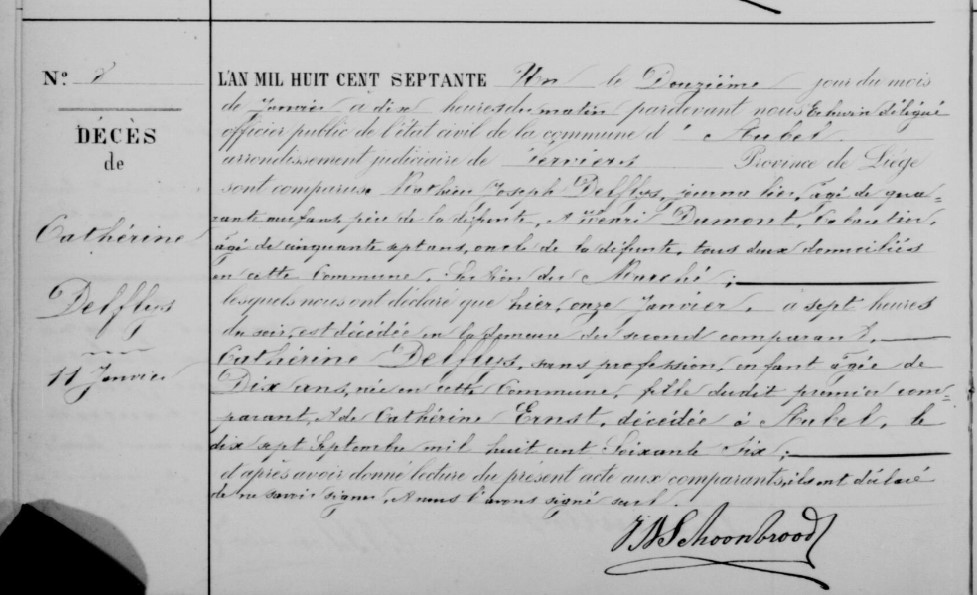 N.o
DÉCÈS
de
Cathérine
Delflys
11 Janvier
L'AN MIL HUIT CENT SEPTANTE Un le Douzième jour du mois
de Janvier à dix heures du matin pardevant nous Echevin délégué
officier public de l'état civil de la commune d' Aubel
arrondissement judiciaire de Verviers Province de Liége
sont comparus Mathieu Joseph Delflys, journalier, âgé de qua=
rante neuf ans, père de la défunte, & Henri Dumont,
âgé de cinquante sept ans, oncle de la défunte, tous deux domiciliés
en cette Commune, Section du Marché;
lesquels nous ont déclaré que hier, onze Janvier, à sept heures
du soir, est décédée en la demeure du second comparant,
Cathérine Delflys, sans profession, enfant âgée de
Dix ans, née en cette Commune, fille dudit premier com=
parant, & de Cathérine Ernst, décédée à Aubel, le
dix sept Septembre mil huit cent Soixante Six;
d'après avoir donné lecture du présent acte aux comparants, ils ont déclaré
de ne savoir signer, & nous l'avons signé seul.
Schoonbrood